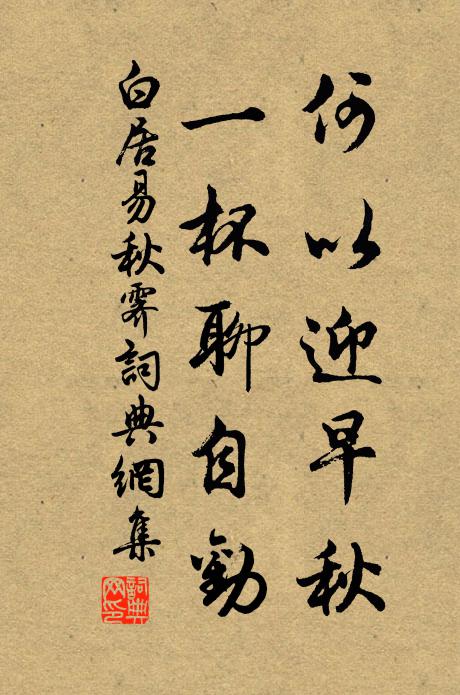 何以迎早秋
一杯聊自勸
白居易秋霽詞典網集
詞典網印